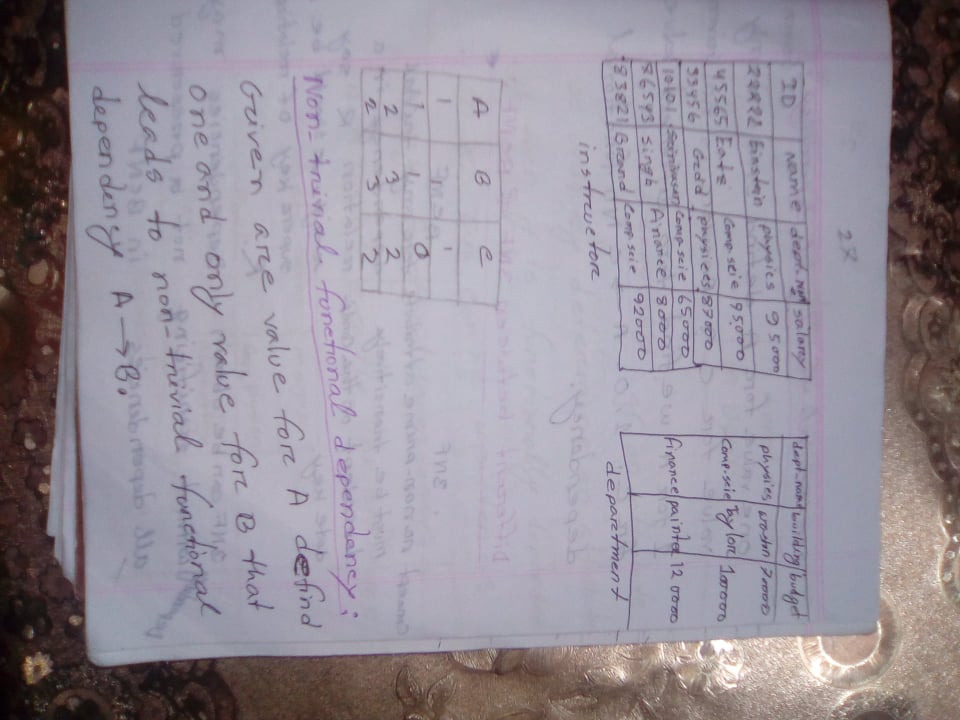 27
ID name dept-name salary
22222 Einstein physics 95000
45565 Eatz comp.scie 95000
33456 Gedd physices 87000
10101 Srinivasan comp.scie 65000
86543 singb finance 8000
83821 Brand comp.scie 92000
instructor
dept-name building budget
physies 70000
comp.scie Taylore 100000
finance painter 120000
department
A B C
1 1 1
1 1 0
2 3 2
2 3 2
Non-trivial functional dependency:
Given are value fore A defind
one and only value fore B that
leads to non-trivial functional
dependency A → B.